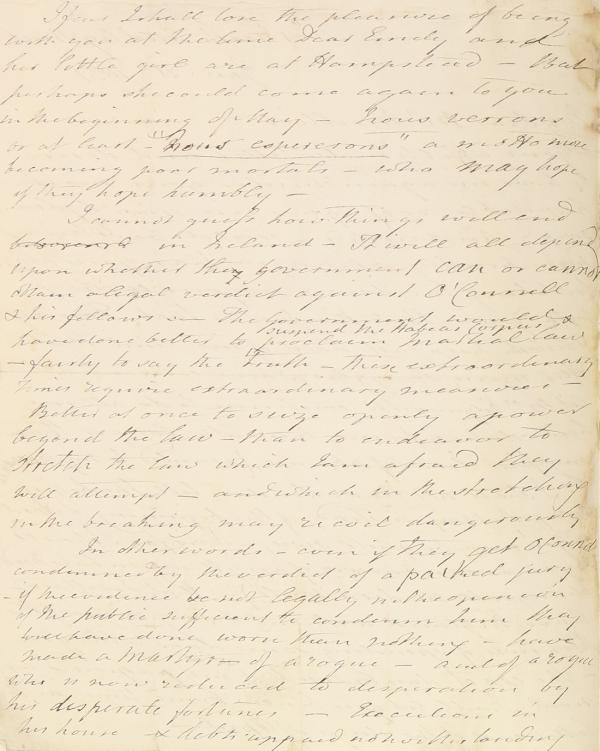 I fear I shall lose the pleasure of being
with you at the time Dear Emily and
her little girl are at Hampstead - But
perhaps she could come again to you
in the beginning of May - nous verrons
or at least - "nous esperons" a motto more
becoming poor mortals - who may hope
if they hope humbly -
I cannot guess how things will end
in Ireland - It will all depend
upon whether they government can or cannot
obtain a legal verdict against O'Connell
& his fellows - The government would
suspend the Habeas Corpus &
have done better to proclaim martial law
- fairly to say the truth - these extraordinary
times require extraordinary measures -
Better at once to seize openly a power
beyond the law - than to endeavor to
stretch the law which I am afraid they
will attempt - and which in the stretching
or the breaking may recoil dangerously
In other words - even if they get O'Connell
condemned by the verdict of a packed jury
- if the evidence be not legally in the opinion
of the public sufficient to condemn him they
will have done worse than nothing - have
made a Martyr of a rogue - and of a rogue
who is now reduced to desperation by
his desperate fortunes - Executions in
his house & debts unpaid notwithstanding